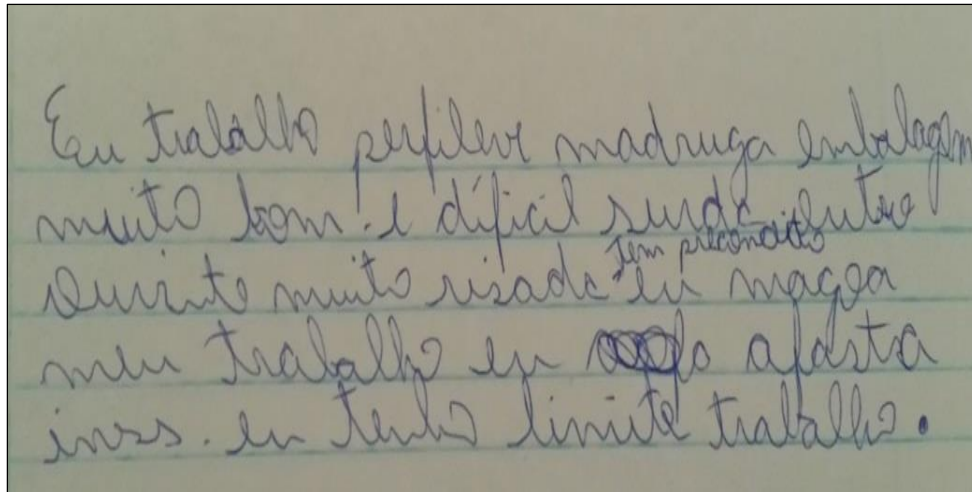 Eu trabalho perfileve madruga embalagem
muito bom. e difícil surda outro
ouvinte muito risada tem preconceito eu magoa
meu trabalho eu afasta
inss. eu tenho limite trabalho.